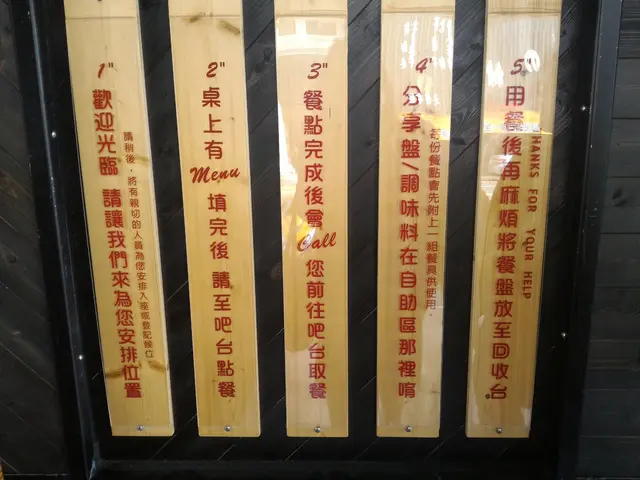 1"
歡迎光臨 請讓我們來為您安排位置
請稍後，將有親切的人員為您安排入座或登記候位
2"
桌上有 Menu 填完後 請至吧台點餐
3"
餐點完成後會 Call 您前往吧台取餐
4"
分享盤/調味料在自助區那裡唷
每份餐點會先附上一組餐具供使用。
5"
用餐後再麻煩將餐盤放至回收台。
THANKS FOR YOUR HELP